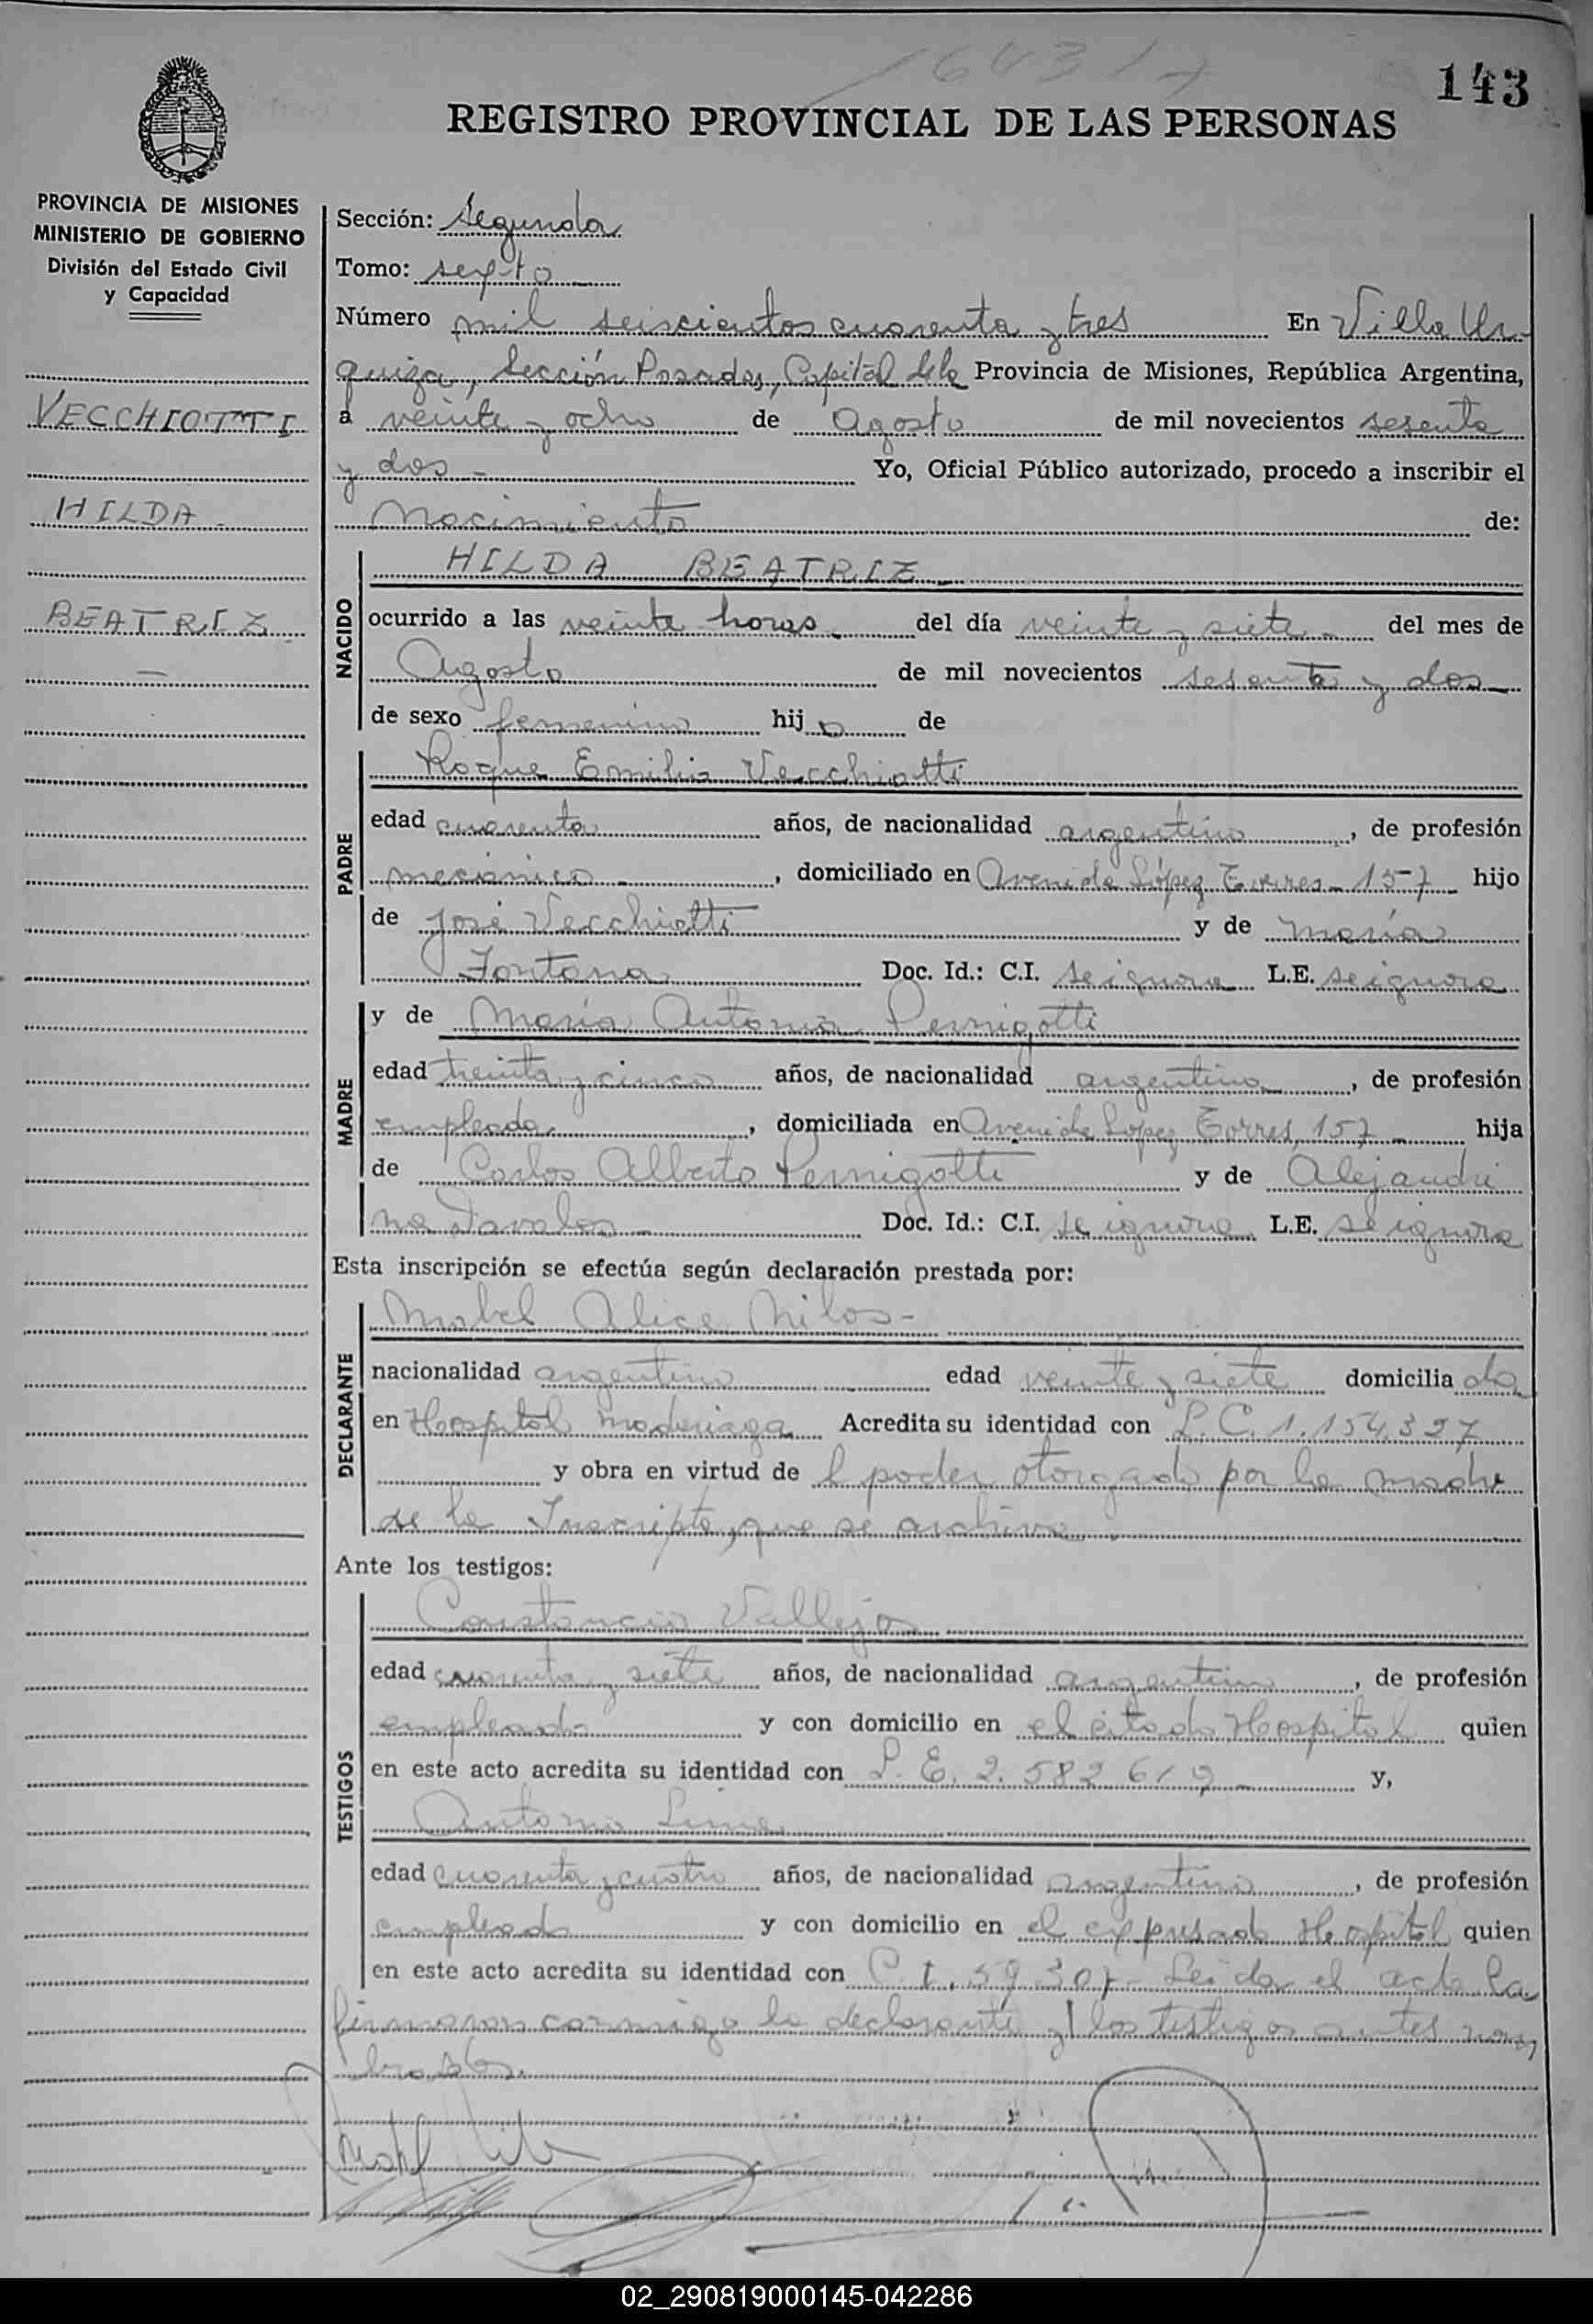 1643/7
143
REGISTRO PROVINCIAL DE LAS PERSONAS
PROVINCIA DE MISIONES
MINISTERIO DE GOBIERNO
División del Estado Civil
y Capacidad
VECCHIOTTI
HILDA
BEATRIZ
Sección: Segunda
Tomo: sexto
Número mil seiscientos cuarenta y tres En Villa Ur-
quiza, Sección Posadas, Capital de la Provincia de Misiones, República Argentina,
a veinte y ocho de Agosto de mil novecientos sesenta
y dos - Yo, Oficial Público autorizado, procedo a inscribir el
Nacimiento de:
NACIDO
HILDA BEATRIZ
ocurrido a las veinte horas del día veinte y siete del mes de
Agosto de mil novecientos sesenta y dos
de sexo femenino hija de
PADRE
Roque Emilio Vecchiotti
edad cuarenta años, de nacionalidad argentino, de profesión
mecánico, domiciliado en Avenida López Torres - 157 hijo
de José Vecchiotti y de María
Fontana Doc. Id.: C.I. se ignora L.E. se ignora
MADRE
y de María Antonia Pernigotti
edad treinta y cinco años, de nacionalidad argentina, de profesión
empleada, domiciliada en Avenida López Torres, 157 hija
de Carlos Alberto Pernigotti y de Alejandri
na Davalos Doc. Id.: C.I. se ignora L.E. se ignora
Esta inscripción se efectúa según declaración prestada por:
DECLARANTE
Mabel Alice Milos -
nacionalidad argentina edad veinte y siete domiciliada
en Hospital Madariaga Acredita su identidad con L.C. 1.154.327
y obra en virtud de l poder otorgado por la madre
de la Inscripta, que se archiva.
Ante los testigos:
TESTIGOS
Constancio Vallejos
edad cuarenta y siete años, de nacionalidad argentino, de profesión
empleado y con domicilio en el citado Hospital quien
en este acto acredita su identidad con L.E. 2.582 619 y,
Antonio
edad cuarenta y cuatro años, de nacionalidad argentino, de profesión
empleado y con domicilio en el expresado Hospital quien
en este acto acredita su identidad con C I. 59.307 - Leida el acta la
firmaron conmigo la declarante y los testigos antes nom
brados.
02_290819000145-042286